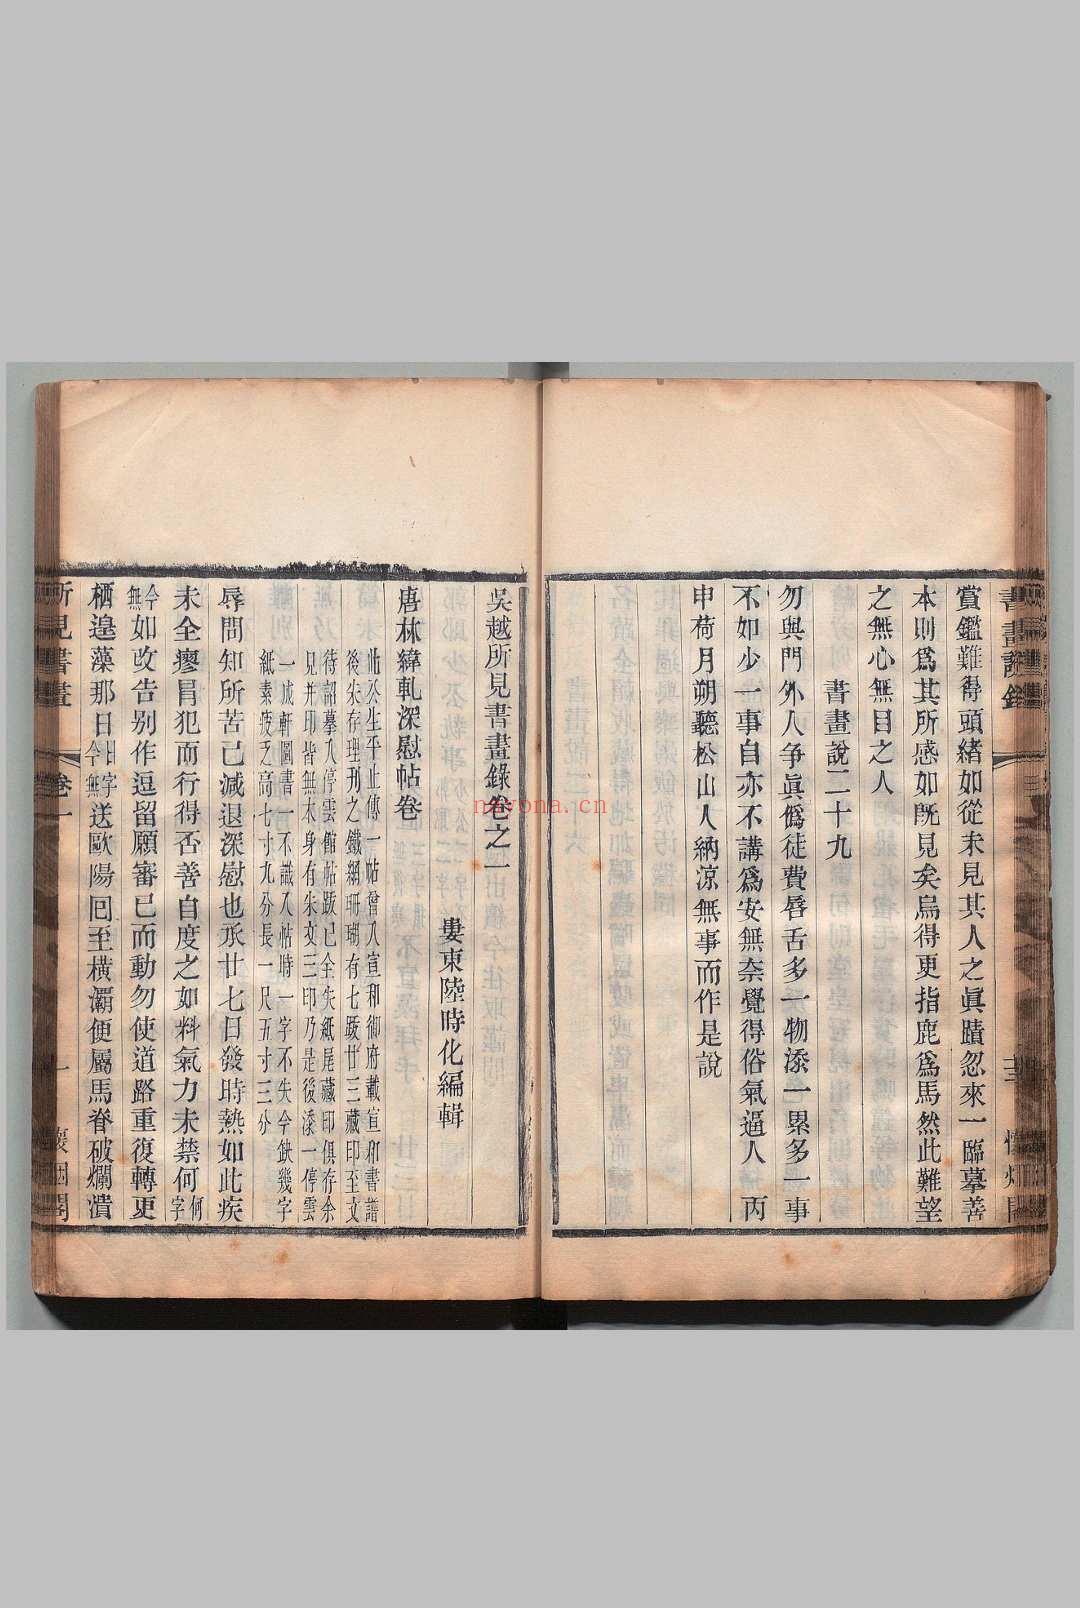 賞鑑難得頭緒如從未見其人之眞蹟忽來一臨摹善
本則爲其所惑如旣見矣烏得更指鹿爲馬然此難望
之無心無目之人
書畫說二十九
勿與門外人争眞僞徒費唇舌多一物添一累多一事
不如少一事自亦不講爲安無奈覺得俗氣逼人 丙
申荷月朔聽松山人納涼無事而作是說
吳越所見書畫錄卷之一
婁東陸時化編輯
唐林緯乾深慰帖卷
此公生平止傳一帖曾入宣和御府載宣和書譜
後尖存理刑之鐵網珊瑚有七跋廿三藏印至文
待詔摹入停雲館帖跋已全失紙尾藏印俱存余
見并印皆無本身有朱文三印乃是後添一停雲
一城軒圖書一不識入帖時一字不失今缺幾字
紙素疲乏高七寸九分長一尺五寸三分
辱問知所苦已減退深慰也承廿七日發時熱如此疾
未全瘳冒犯而行得否善自度之如料氣力未禁何何字
今無如改告别作逗留願審已而動勿使道路重復轉更
栖遑藻那日日字今無送歐陽回至橫灞便屬馬脊破爛潰
所見書畫 卷一 一 懷烟閣
navona.cn